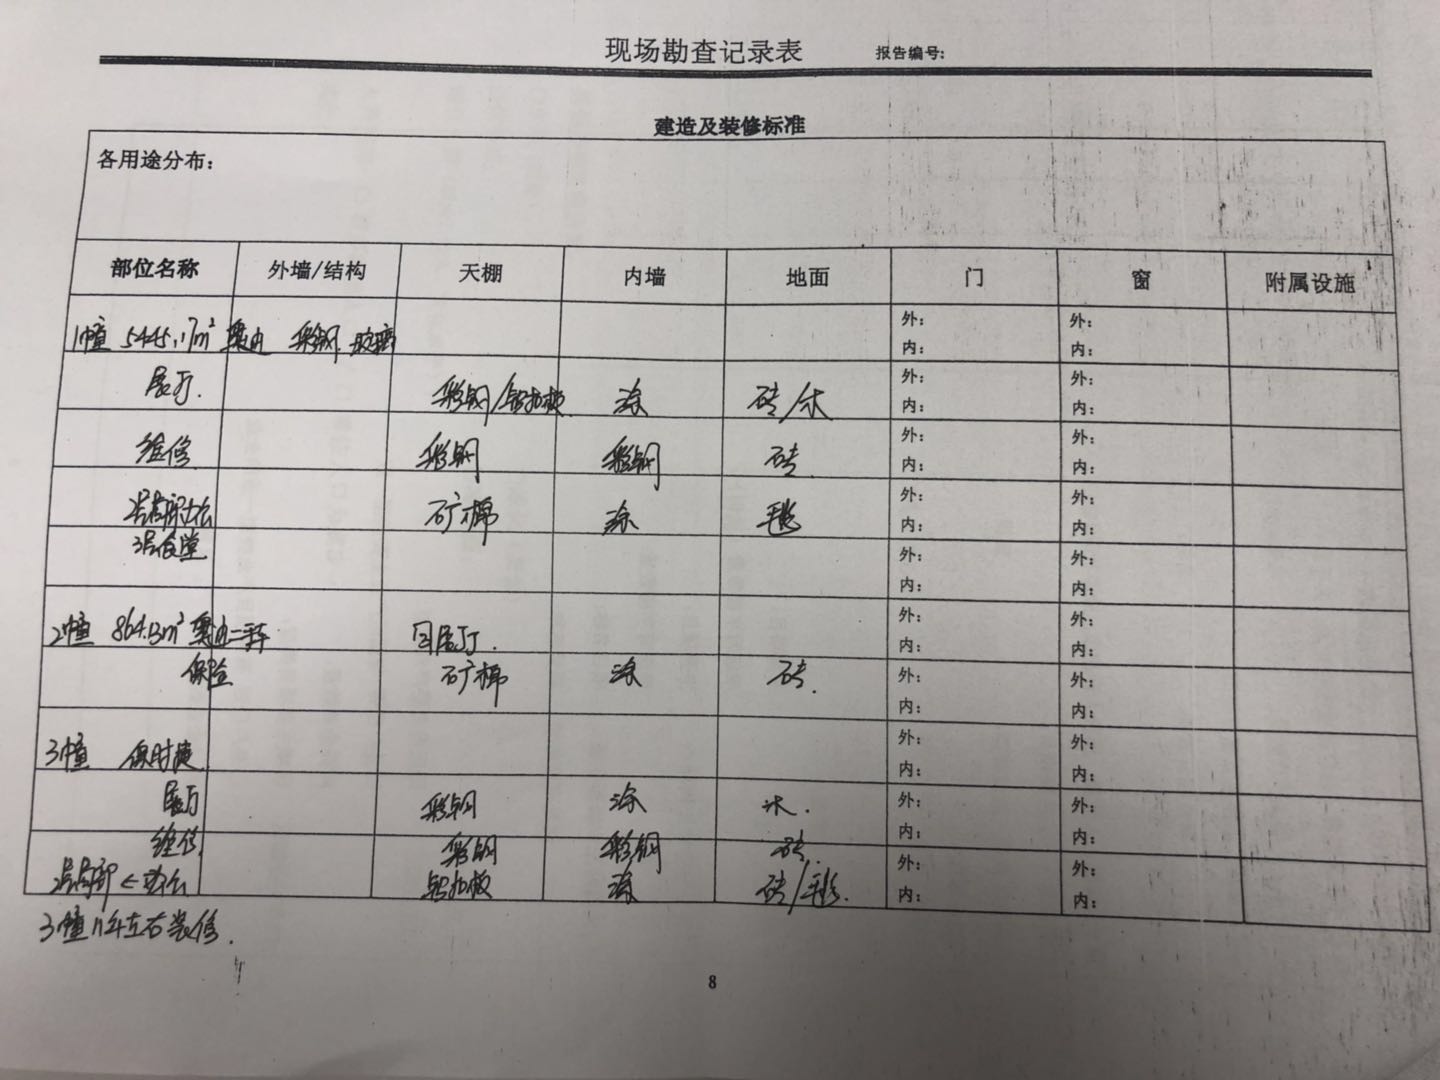 现场勘查记录表 报告编号:
建造及装修标准
各用途分布:
部位名称 外墙/结构 天棚 内墙 地面 门 窗 附属设施
1幢 5445.17m² 奥迪 彩钢.玻璃 外: 外:
内: 内:
展厅. 彩钢/铝扣板 涂 砖/木 外: 外:
内: 内:
维修 彩钢 彩钢 砖 外: 外:
内: 内:
2层局部办公 矿棉 涂 毯 外: 外:
内: 内:
3层食堂 外: 外:
内: 内:
2幢 864.13m² 奥迪二手车 同展厅. 外: 外:
内: 内:
保险 矿棉 涂 砖. 外: 外:
内: 内:
3幢 保时捷 外: 外:
内: 内:
展厅 彩钢 涂 木. 外: 外:
内: 内:
维修 彩钢 彩钢 砖.
2层局部←办公 铝扣板 涂 砖/毯. 外: 外:
内: 内:
3幢11年左右装修.
8